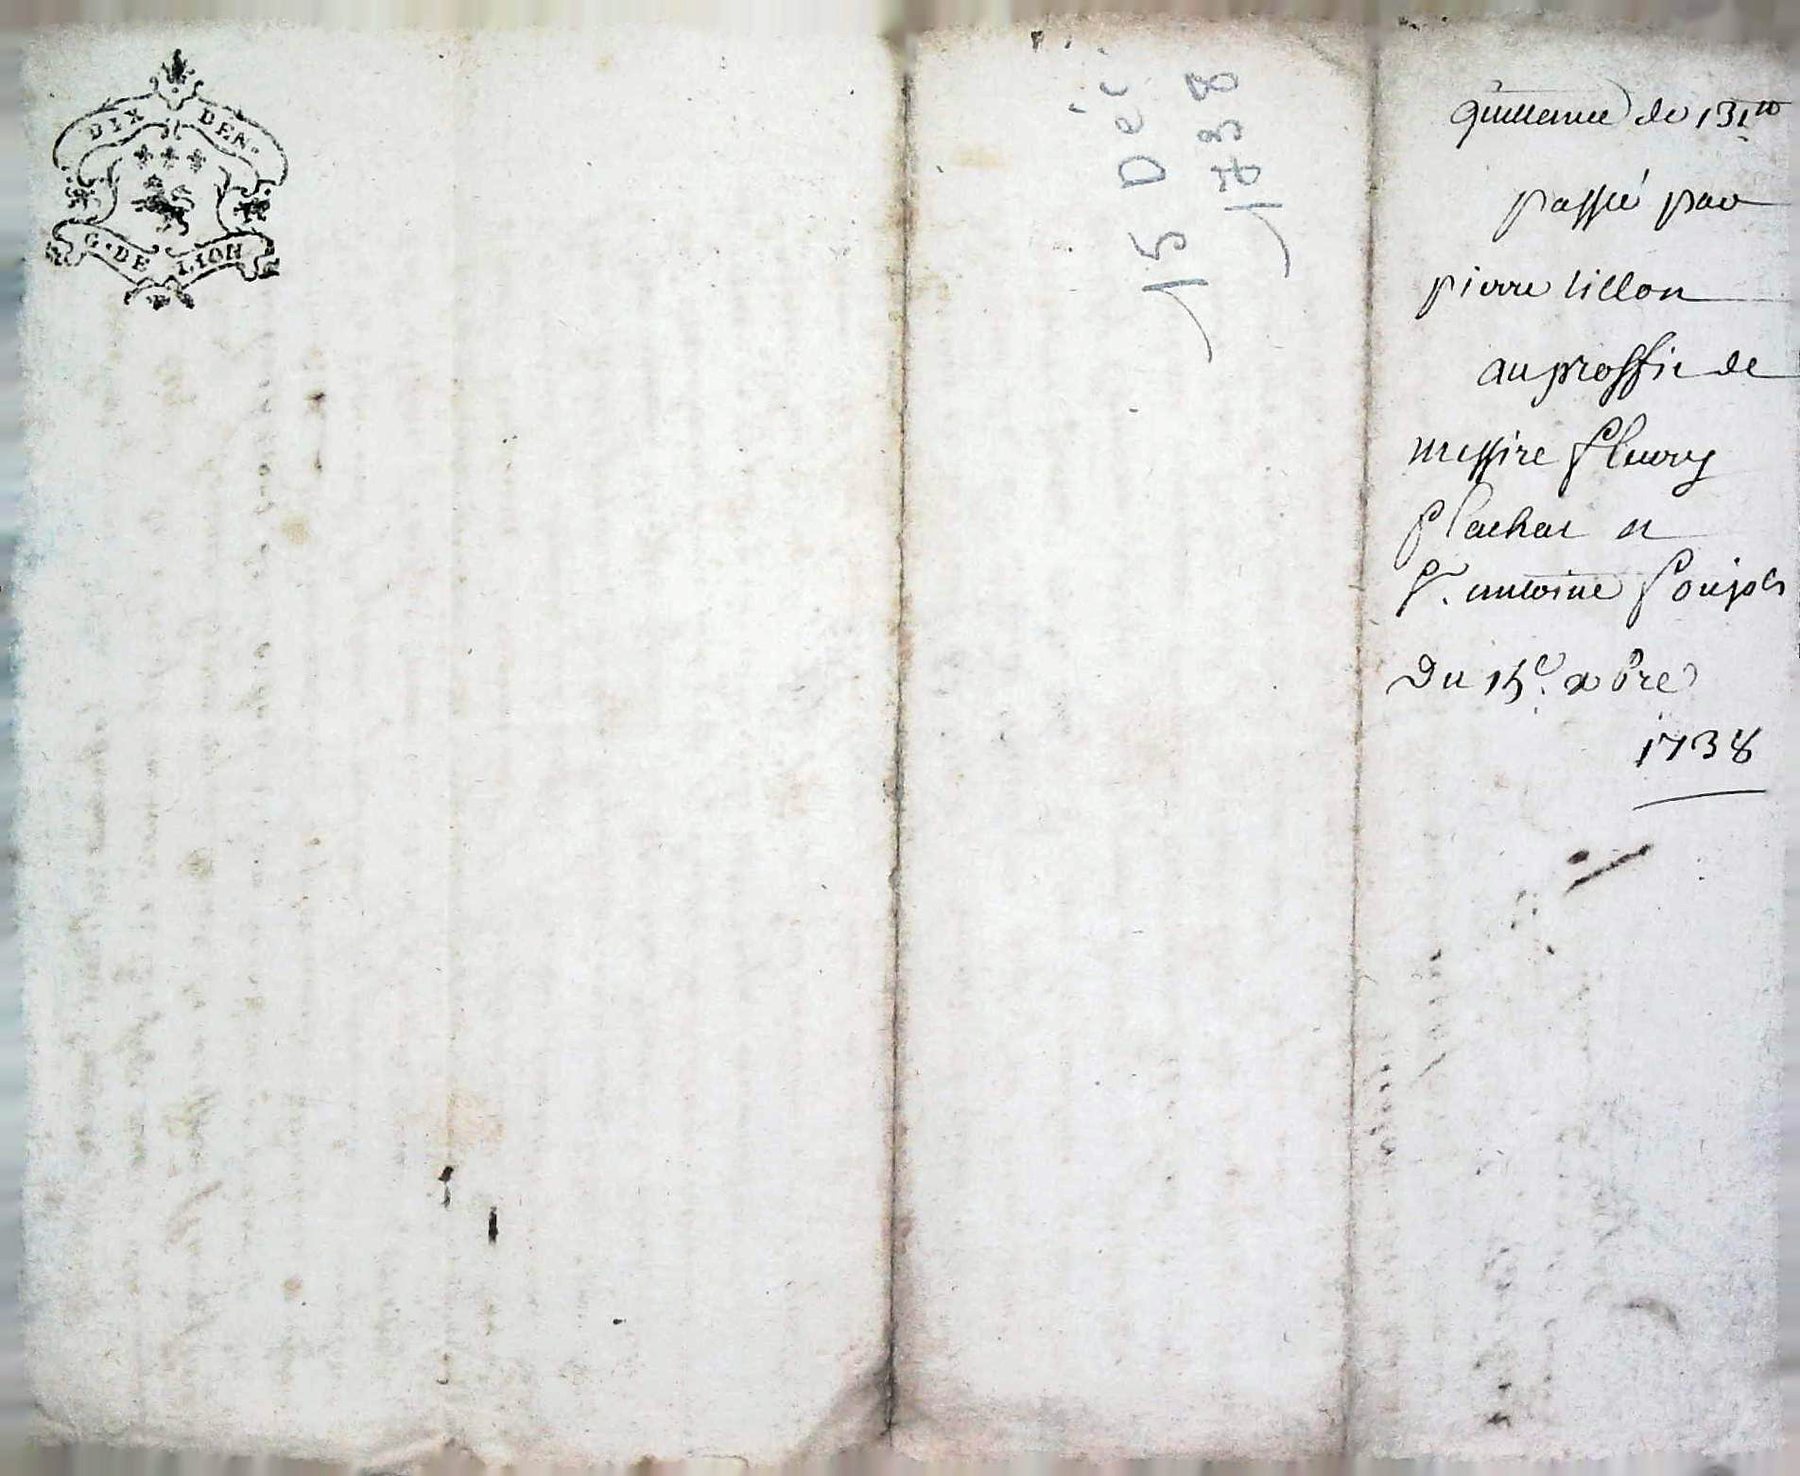 DIX DEN.
G. DE LION
15 Déc
1738
quittance de 131tt
passée par
pierre tillon
au proffit de
messire fleury
flachat et
Sr. antoine
Du 15e. xbre
1738